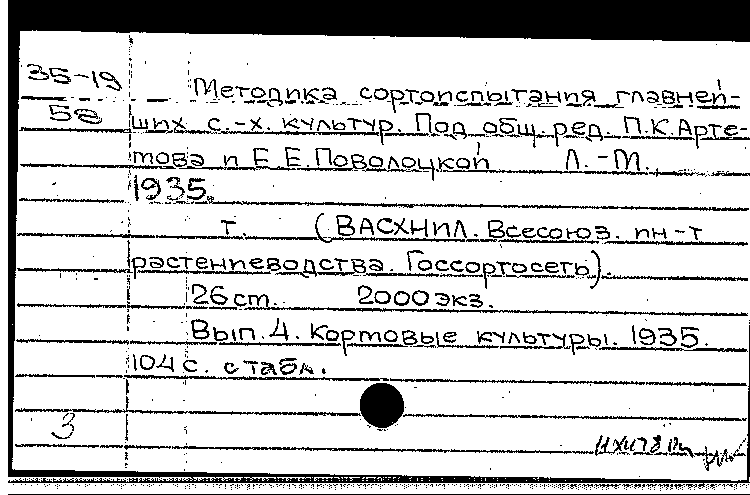 35-19
58
Методика сортоиспытания главней-
ших с.-х. культур. Под общ. ред. П.К.Арте-
мова и Е.Е.Поволоцкой Л.-М.,
1935.
т. (ВАСХНИЛ. Всесоюз. ин-т
растениеводства. Госсортосеть).
26 см. 2000 экз.
Вып. 4. Кормовые культуры. 1935.
104 с. с табл.
3